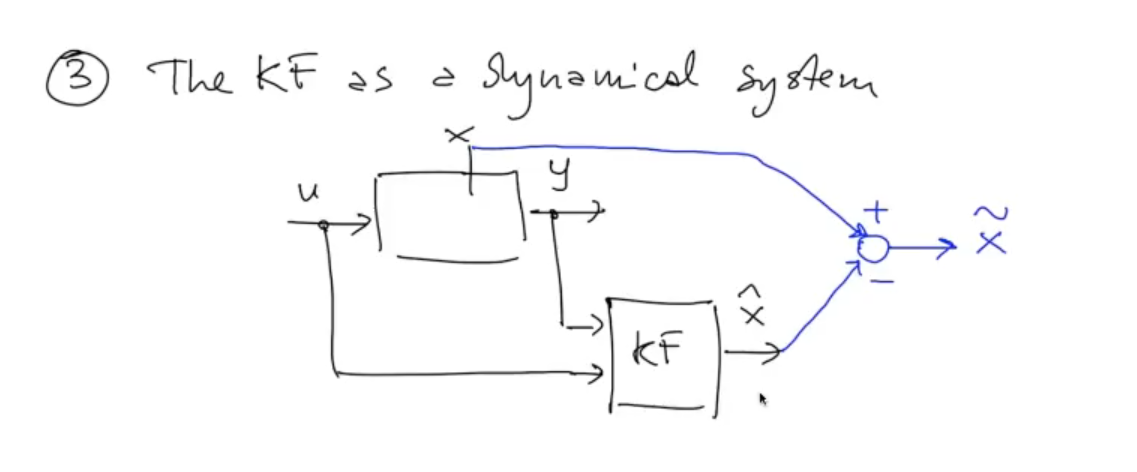 ③ The KF as a dynamical system
x
y
u
+
x̃
−
x̂
KF